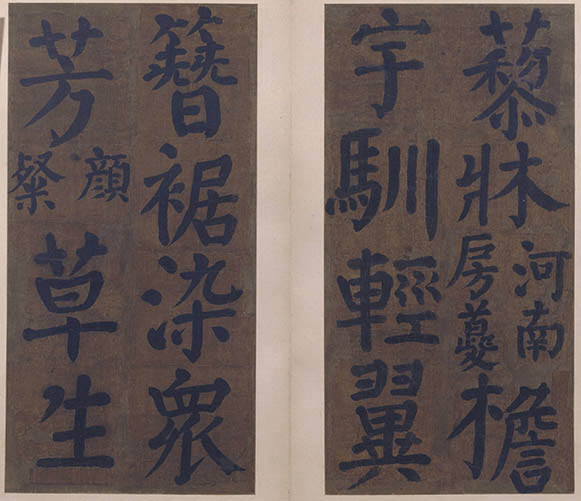 藜牀河南房蘷檐
宇馴輕翼
簪裾染衆
芳顔粲草生